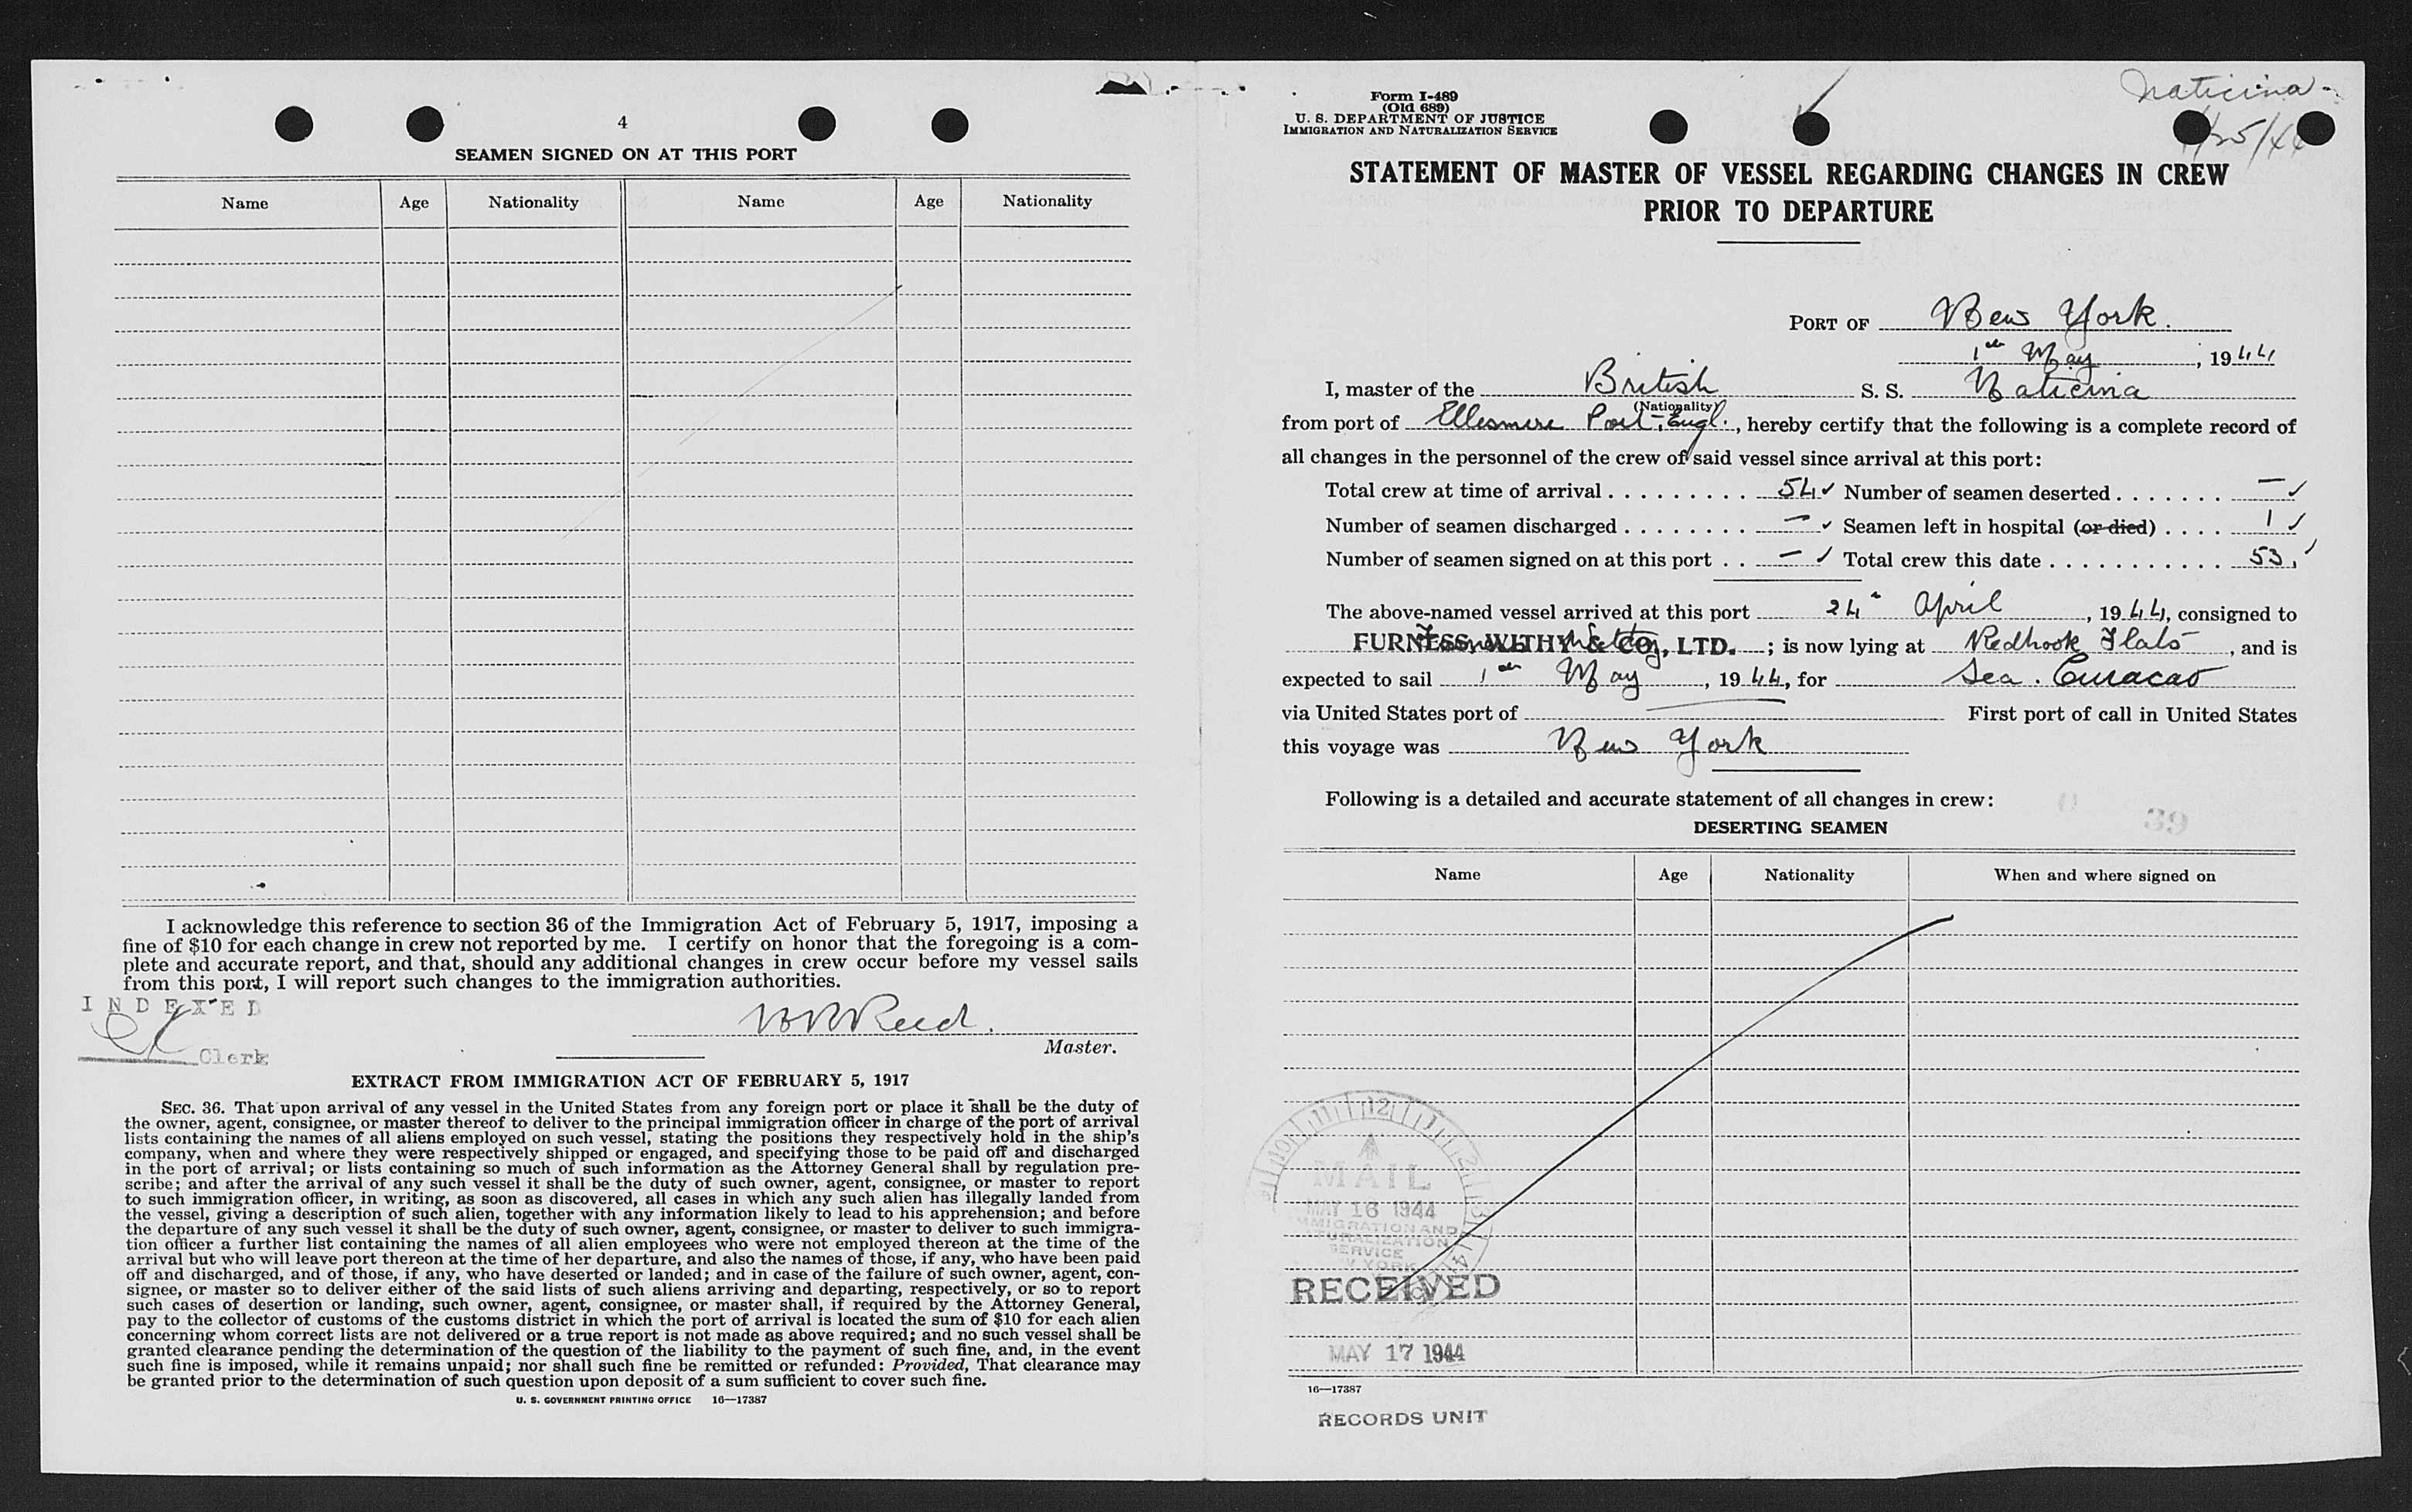 4
SEAMEN SIGNED ON AT THIS PORT
Name Age Nationality Name Age Nationality
I acknowledge this reference to section 36 of the Immigration Act of February 5, 1917, imposing a
fine of $10 for each change in crew not reported by me. I certify on honor that the foregoing is a com-
plete and accurate report, and that, should any additional changes in crew occur before my vessel sails
from this port, I will report such changes to the immigration authorities.
INDEXED
Clerk
Reed.
Master.
EXTRACT FROM IMMIGRATION ACT OF FEBRUARY 5, 1917
SEC. 36. That upon arrival of any vessel in the United States from any foreign port or place it shall be the duty of
the owner, agent, consignee, or master thereof to deliver to the principal immigration officer in charge of the port of arrival
lists containing the names of all aliens employed on such vessel, stating the positions they respectively hold in the ship's
company, when and where they were respectively shipped or engaged, and specifying those to be paid off and discharged
in the port of arrival; or lists containing so much of such information as the Attorney General shall by regulation pre-
scribe; and after the arrival of any such vessel it shall be the duty of such owner, agent, consignee, or master to report
to such immigration officer, in writing, as soon as discovered, all cases in which any such alien has illegally landed from
the vessel, giving a description of such alien, together with any information likely to lead to his apprehension; and before
the departure of any such vessel it shall be the duty of such owner, agent, consignee, or master to deliver to such immigra-
tion officer a further list containing the names of all alien employees who were not employed thereon at the time of the
arrival but who will leave port thereon at the time of her departure, and also the names of those, if any, who have been paid
off and discharged, and of those, if any, who have deserted or landed; and in case of the failure of such owner, agent, con-
signee, or master so to deliver either of the said lists of such aliens arriving and departing, respectively, or so to report
such cases of desertion or landing, such owner, agent, consignee, or master shall, if required by the Attorney General,
pay to the collector of customs of the customs district in which the port of arrival is located the sum of $10 for each alien
concerning whom correct lists are not delivered or a true report is not made as above required; and no such vessel shall be
granted clearance pending the determination of the question of the liability to the payment of such fine, and, in the event
such fine is imposed, while it remains unpaid; nor shall such fine be remitted or refunded: Provided, That clearance may
be granted prior to the determination of such question upon deposit of a sum sufficient to cover such fine.
U. S. GOVERNMENT PRINTING OFFICE 16—17387
Form I-489
(Old 689)
U. S. DEPARTMENT OF JUSTICE
IMMIGRATION AND NATURALIZATION SERVICE
Naticina -
STATEMENT OF MASTER OF VESSEL REGARDING CHANGES IN CREW
PRIOR TO DEPARTURE
PORT OF New York.
1st May, 1944
I, master of the British S. S. Naticina
(Nationality)
from port of Ellesmere Port, Engl., hereby certify that the following is a complete record of
all changes in the personnel of the crew of said vessel since arrival at this port:
Total crew at time of arrival . . . . . . . . . . 54 ✓ Number of seamen deserted . . . . . . . — ✓
Number of seamen discharged . . . . . . . . — ✓ Seamen left in hospital (or died) . . . . 1 ✓
Number of seamen signed on at this port . . — ✓ Total crew this date . . . . . . . . . . . . 53. ✓
The above-named vessel arrived at this port 24th April, 1944, consigned to
FURNESS, WITHY & CO., LTD. ; is now lying at Redhook Flats, and is
expected to sail 1st May, 1944, for Sea. Curacao
via United States port of — First port of call in United States
this voyage was New York
Following is a detailed and accurate statement of all changes in crew:
39
DESERTING SEAMEN
Name Age Nationality When and where signed on
MAIL
MAY 16 1944
IMMIGRATION AND
NATURALIZATION
SERVICE
NEW YORK
RECEIVED
MAY 17 1944
16—17387
RECORDS UNIT